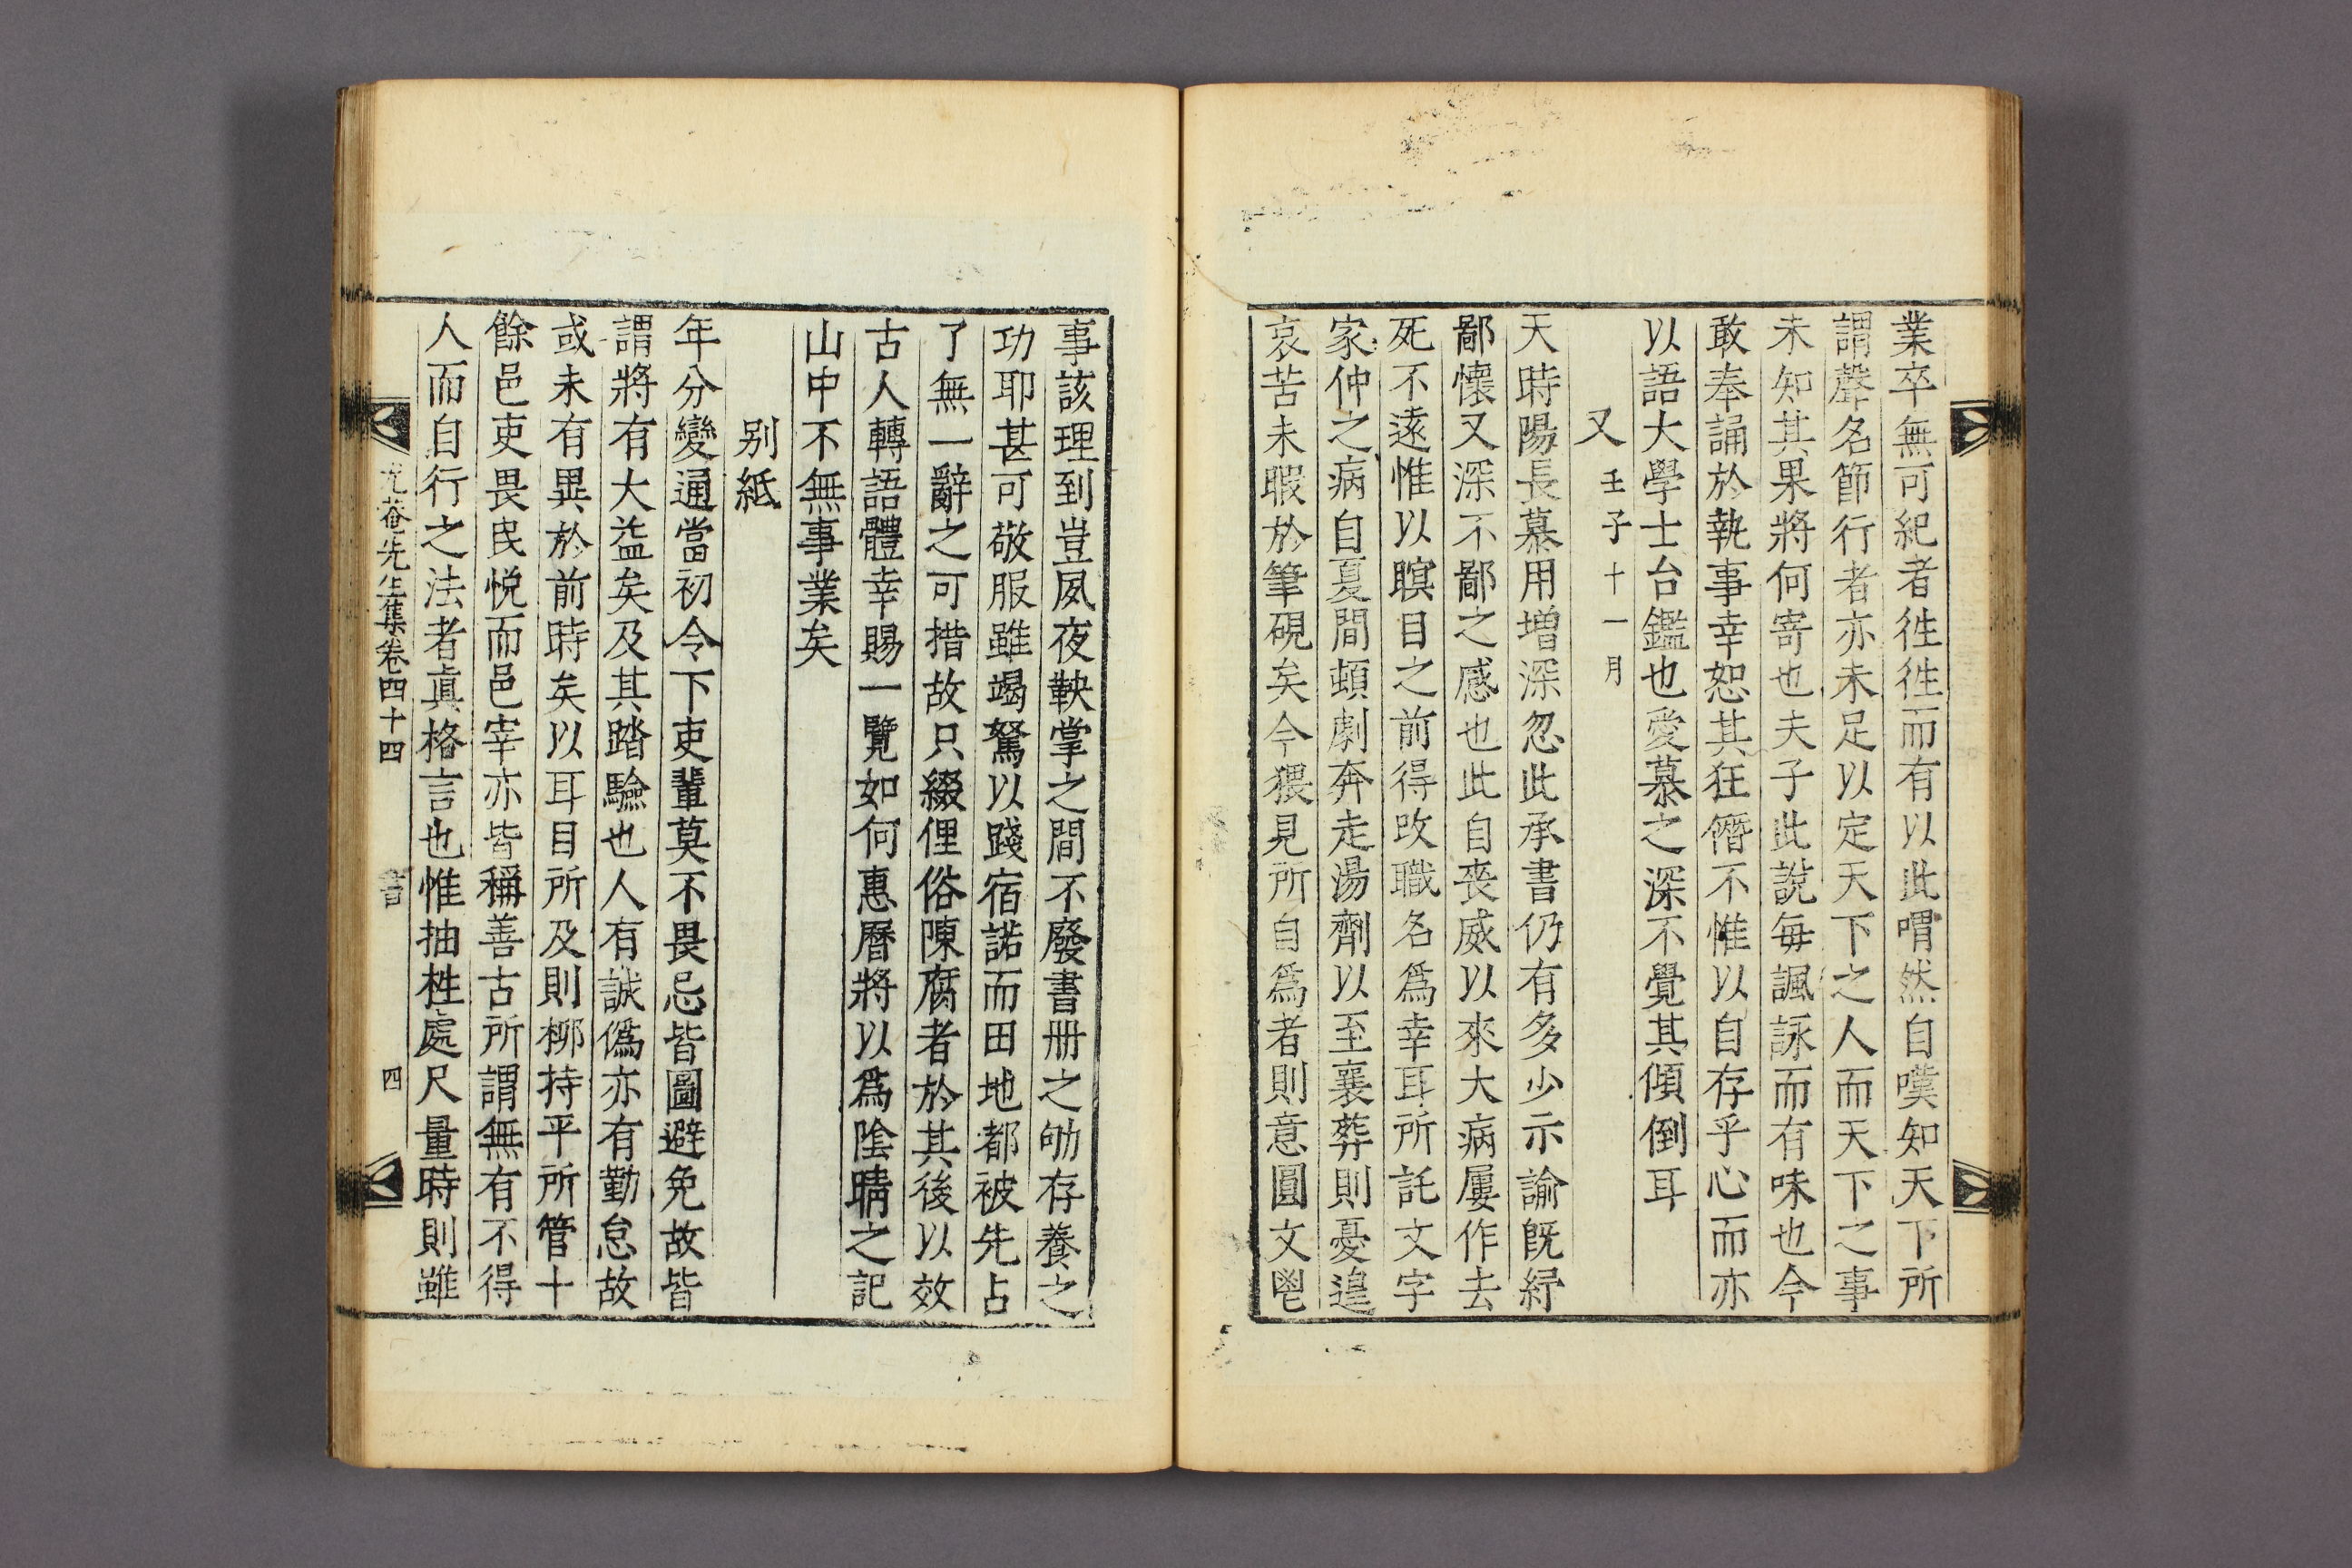 業卒無可紀者徃徃而有以此喟然自嘆知天下所
謂聲名節行者亦未足以定天下之人而天下之事
未知其果將何寄也夫子此說每諷詠而有味也今
敢奉誦於執事幸恕其狂僭不惟以自存乎心而亦
以語大學士台鑑也愛慕之深不覺其傾倒耳
又 壬子十一月
天時陽長慕用增深忽此承書仍有多少示諭旣紓
鄙懷又深不鄙之感也此自喪威以來大病屢作去
死不遠惟以瞑目之前得改職名爲幸耳所託文字
家仲之病自夏間頓劇奔走湯劑以至襄葬則憂遑
哀苦未暇於筆硯矣今猥見所自爲者則意圓文鬯
事該理到豈夙夜鞅掌之間不廢書册之功存養之
功耶甚可敬服雖竭駑以踐宿諾而田地都被先占
了無一辭之可措故只綴俚俗陳腐者於其後以效
古人轉語體幸賜一覽如何惠曆將以爲陰晴之記
山中不無事業矣
別紙
年分變通當初令下吏輩莫不畏忌皆圖避免故皆
謂將有大益矣及其踏驗也人有誠僞亦有勤怠故
或未有異於前時矣以耳目所及則柳持平所管十
餘邑吏畏民悅而邑宰亦皆稱善古所謂無有不得
人而自行之法者眞格言也惟抽栍處尺量時則雖
尤菴先生集卷四十四 書 四